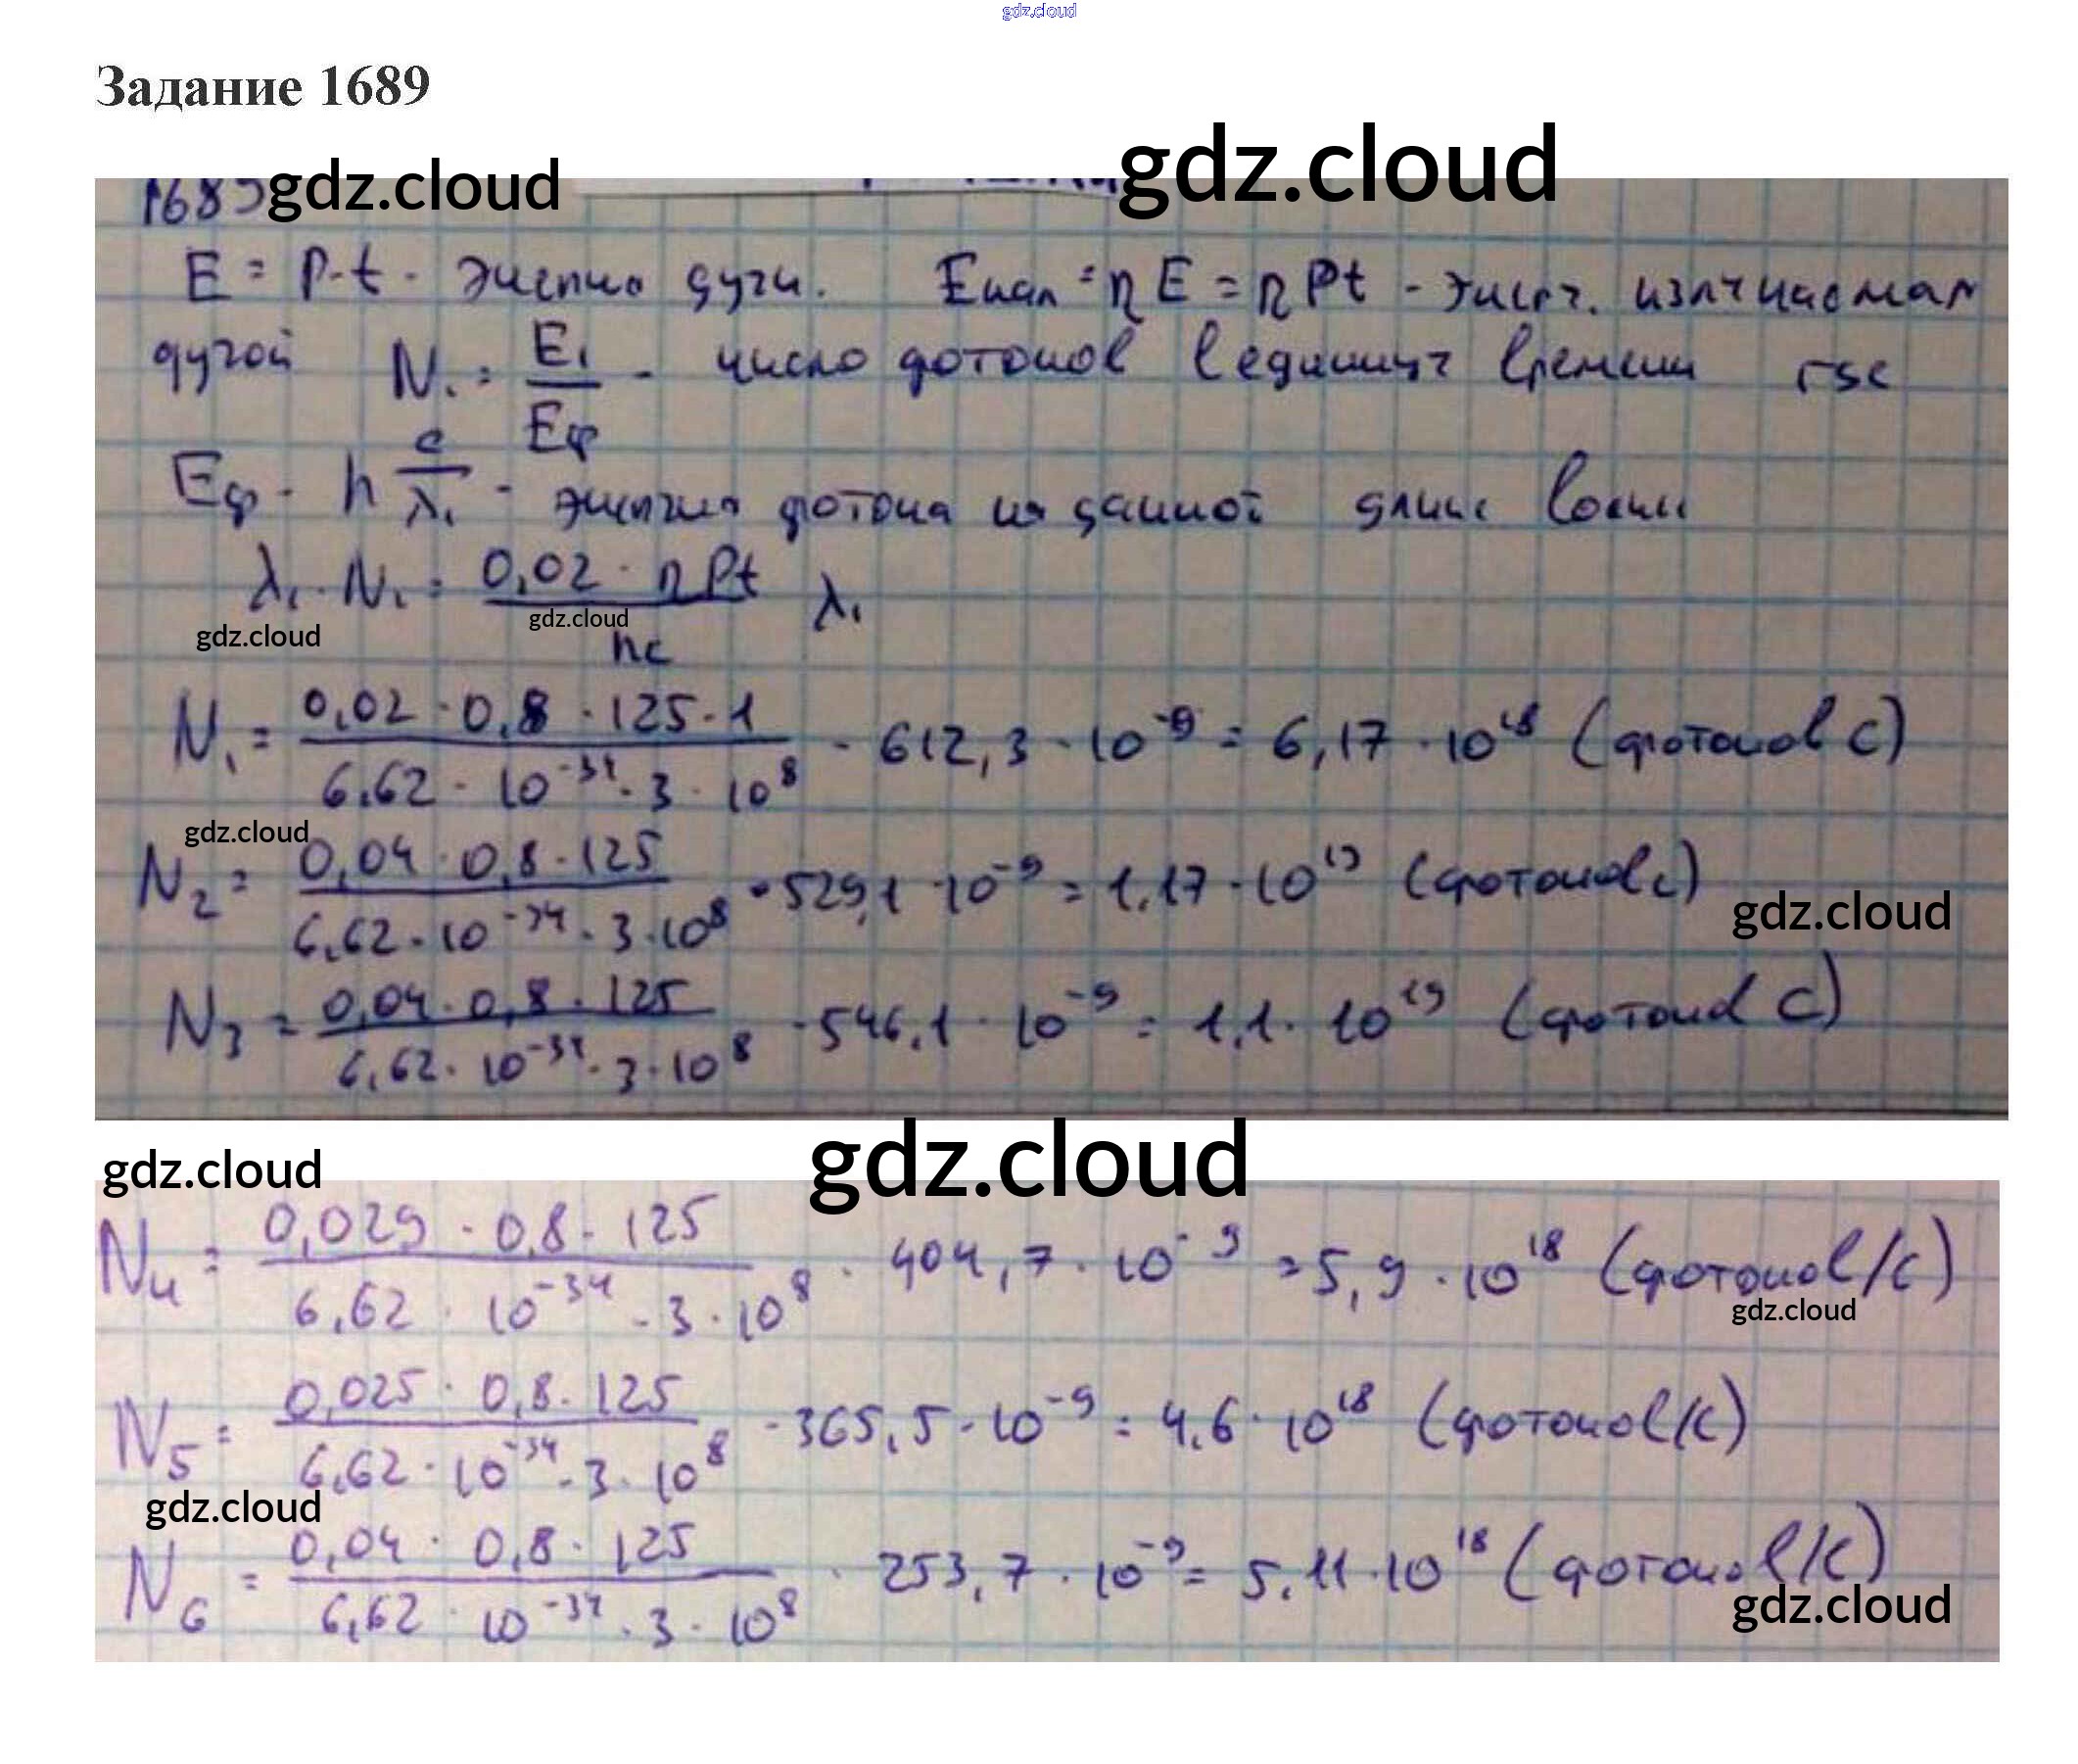 gdz.cloud
Задание 1689
gdz.cloud
gdz.cloud
1689
E = P·t - энергия дуги. Eизл = ηE = ηPt - энерг. излучаемая
дугой N₁ = E₁/Eф - число фотонов в единицу времени где
Eф = h c/λ₁ - энергия фотона из данной длины волны
λ₁. N₁ = 0,02 · ηPt / hc λ₁
gdz.cloud
gdz.cloud
N₁ = 0,02 · 0,8 · 125 · 1 / 6,62 · 10⁻³⁴ · 3 · 10⁸ · 612,3 · 10⁻⁹ = 6,17 · 10¹⁸ (фотонов с)
gdz.cloud
N₂ = 0,04 · 0,8 · 125 / 6,62 · 10⁻³⁴ · 3 · 10⁸ · 529,1 · 10⁻⁹ = 1,17 · 10¹⁹ (фотонов с)
gdz.cloud
N₃ = 0,04 · 0,8 · 125 / 6,62 · 10⁻³⁴ · 3 · 10⁸ · 546,1 · 10⁻⁹ = 1,1 · 10¹⁹ (фотонов с)
gdz.cloud
gdz.cloud
N₄ = 0,029 · 0,8 · 125 / 6,62 · 10⁻³⁴ · 3 · 10⁸ · 404,7 · 10⁻⁹ = 5,9 · 10¹⁸ (фотонов/с)
gdz.cloud
N₅ = 0,025 · 0,8 · 125 / 6,62 · 10⁻³⁴ · 3 · 10⁸ · 365,5 · 10⁻⁹ = 4,6 · 10¹⁸ (фотонов/с)
gdz.cloud
N₆ = 0,04 · 0,8 · 125 / 6,62 · 10⁻³⁴ · 3 · 10⁸ · 253,7 · 10⁻⁹ = 5,11 · 10¹⁸ (фотонов/с)
gdz.cloud